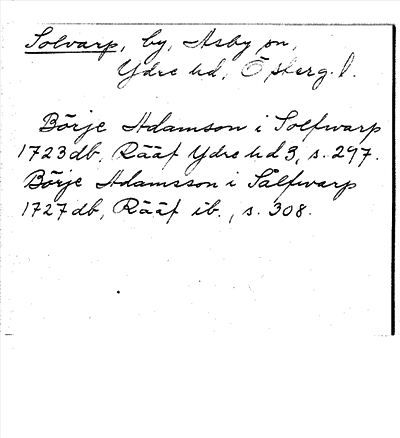 Solvarp, by, Asby sn,
Ydre hd, Östergl.
Börje Adamson i Solfwarp
1723 db, Rääf Ydre hd 3, s. 297.
Börje Adamsson i Sålfwarp
1727 db, Rääf ib., s. 308.